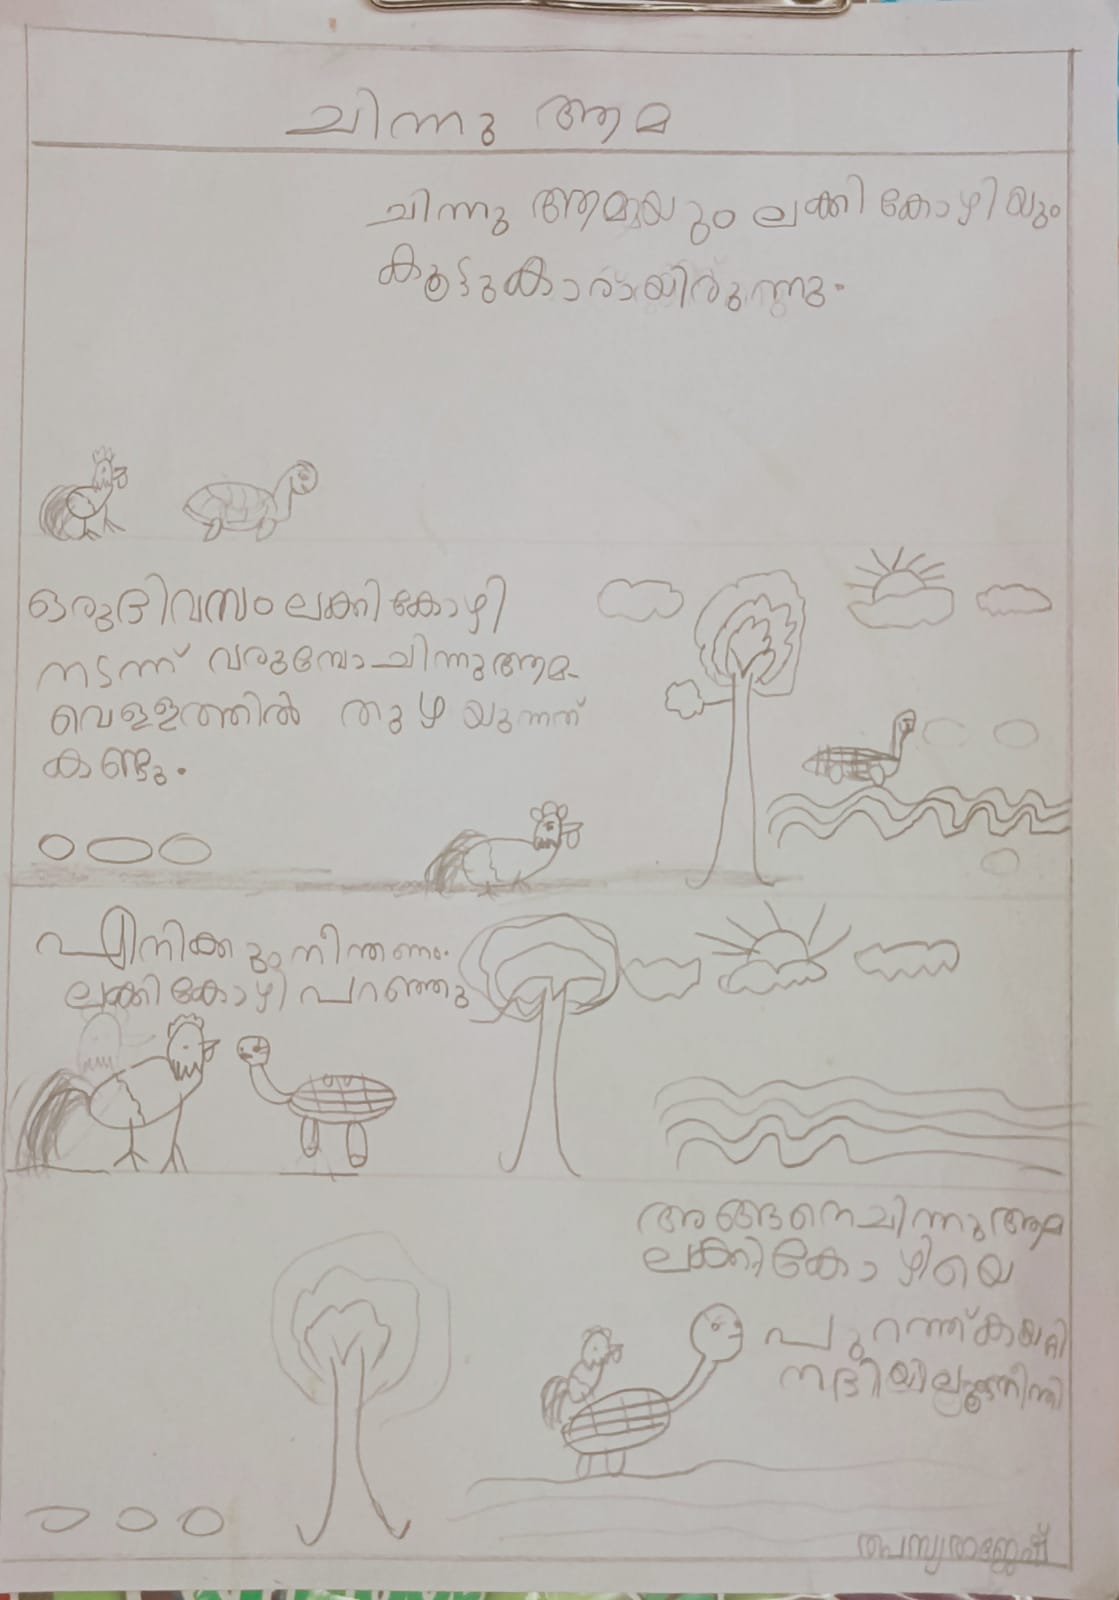 ചിന്നു ആമ
ചിന്നു ആമയും ലക്കി കോഴിയും
കൂട്ടുകാരായിരുന്നു.
ഒരുദിവസം ലക്കി കോഴി
നടന്ന് വരുമ്പോ ചിന്നു ആമ
വെള്ളത്തിൽ തുഴയുന്നത്
കണ്ടു.
എനിക്കും നീന്തണം.
ലക്കി കോഴി പറഞ്ഞു
അങ്ങനെ ചിന്നു ആമ
ലക്കി കോഴിയെ
പുറത്ത് കയറ്റി
നദിയിലൂടെ നീന്തി